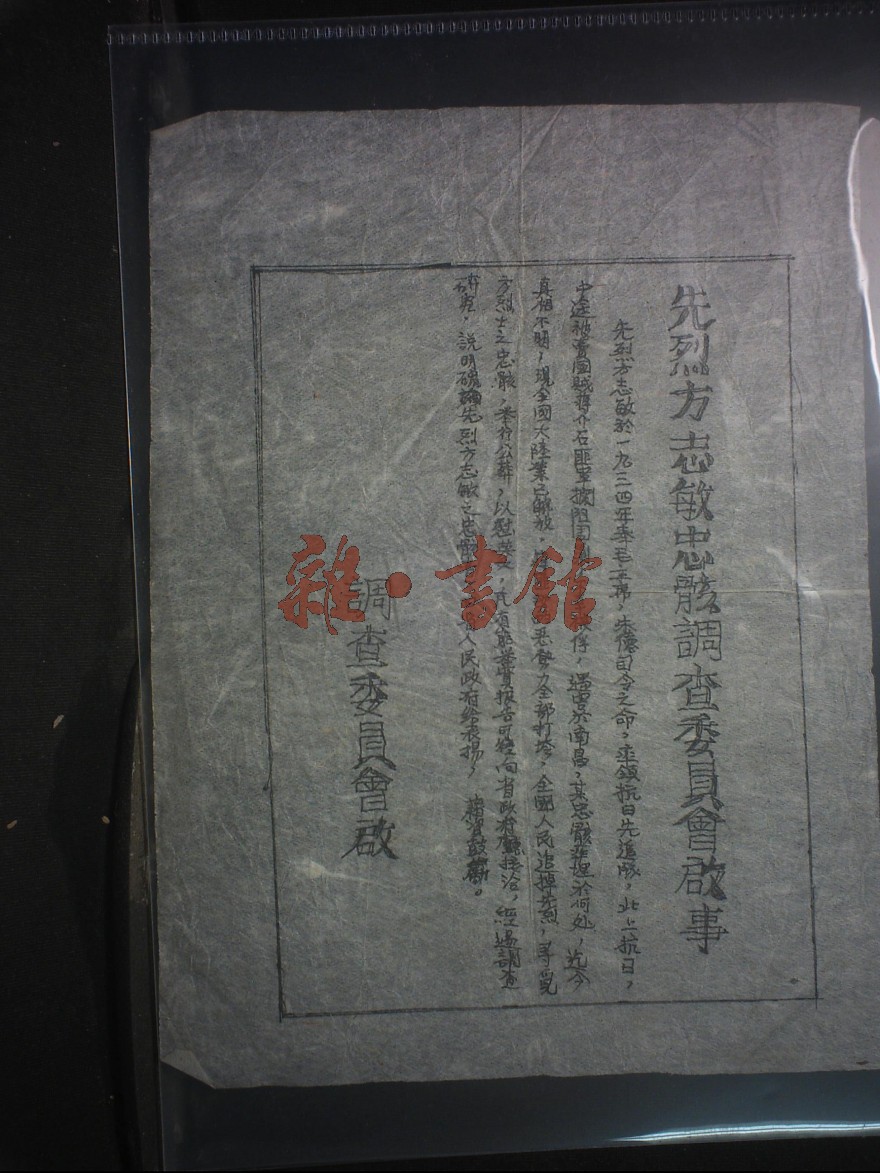 先烈方志敏忠骸調查委員會啟事
先烈方志敏於一九三四年奉毛主席，朱德司令之命，率領抗日先進隊，北上抗日，
中途被賣國賊蔣介石匪軍攔阻俘，遇害於南昌，其忠骸葬埋於何处，迄今
真相不明，現全國大陸業已解放，勢力全部打垮，全國人民追悼先烈，尋覓
方烈士之忠骸，奉行公葬，以慰英如有能举實报告可逕向省政府接洽，經過調查
研究，說明確確先烈方志敏之忠骸人民政府給表揚，
調查委員會啟
雜·書館